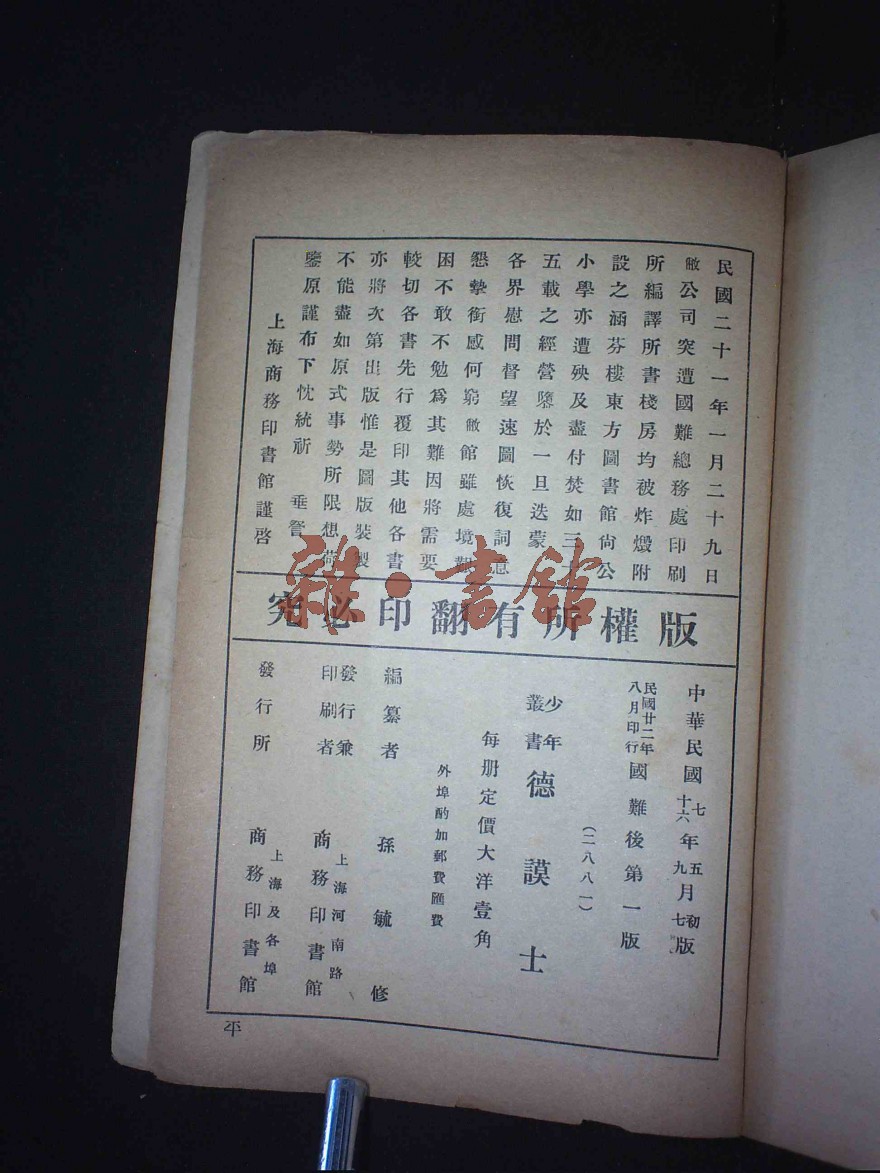 民國二十一年一月二十九日
敝公司突遭國難總務處印刷
所編譯所書棧房均被炸燬附
設之涵芬樓東方圖書館尙公
小學亦遭殃及盡付焚如三十
五載之經營隳於一旦迭蒙
各界慰問督望速圖恢復詞意
懇摯銜感何窮敝館雖處境艱
困不敢不勉爲其難因將需要
較切各書先行覆印其他各書
亦將次第出版惟是圖版裝製
不能盡如原式事勢所限想荷
鑒原謹布下忱統祈 垂詧
上海商務印書館謹啓
版權所有翻印必究
中華民國七年五月初版
十六年九月七版
民國廿二年八月印行國難後第一版
(二八八一)
少年叢書德謨士
每册定價大洋壹角
外埠酌加郵費匯費
編纂者 孫毓修
發行兼印刷者 上海河南路 商務印書館
發行所 上海及各埠 商務印書館
平
雜·書館